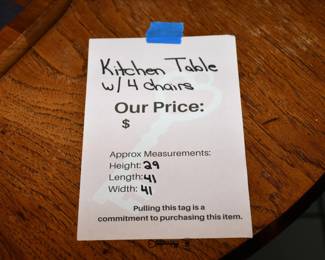 Kitchen Table
w/ 4 chairs
Our Price:
$
Approx Measurements:
Height: 29
Length: 41
Width: 41
Pulling this tag is a
commitment to purchasing this item.